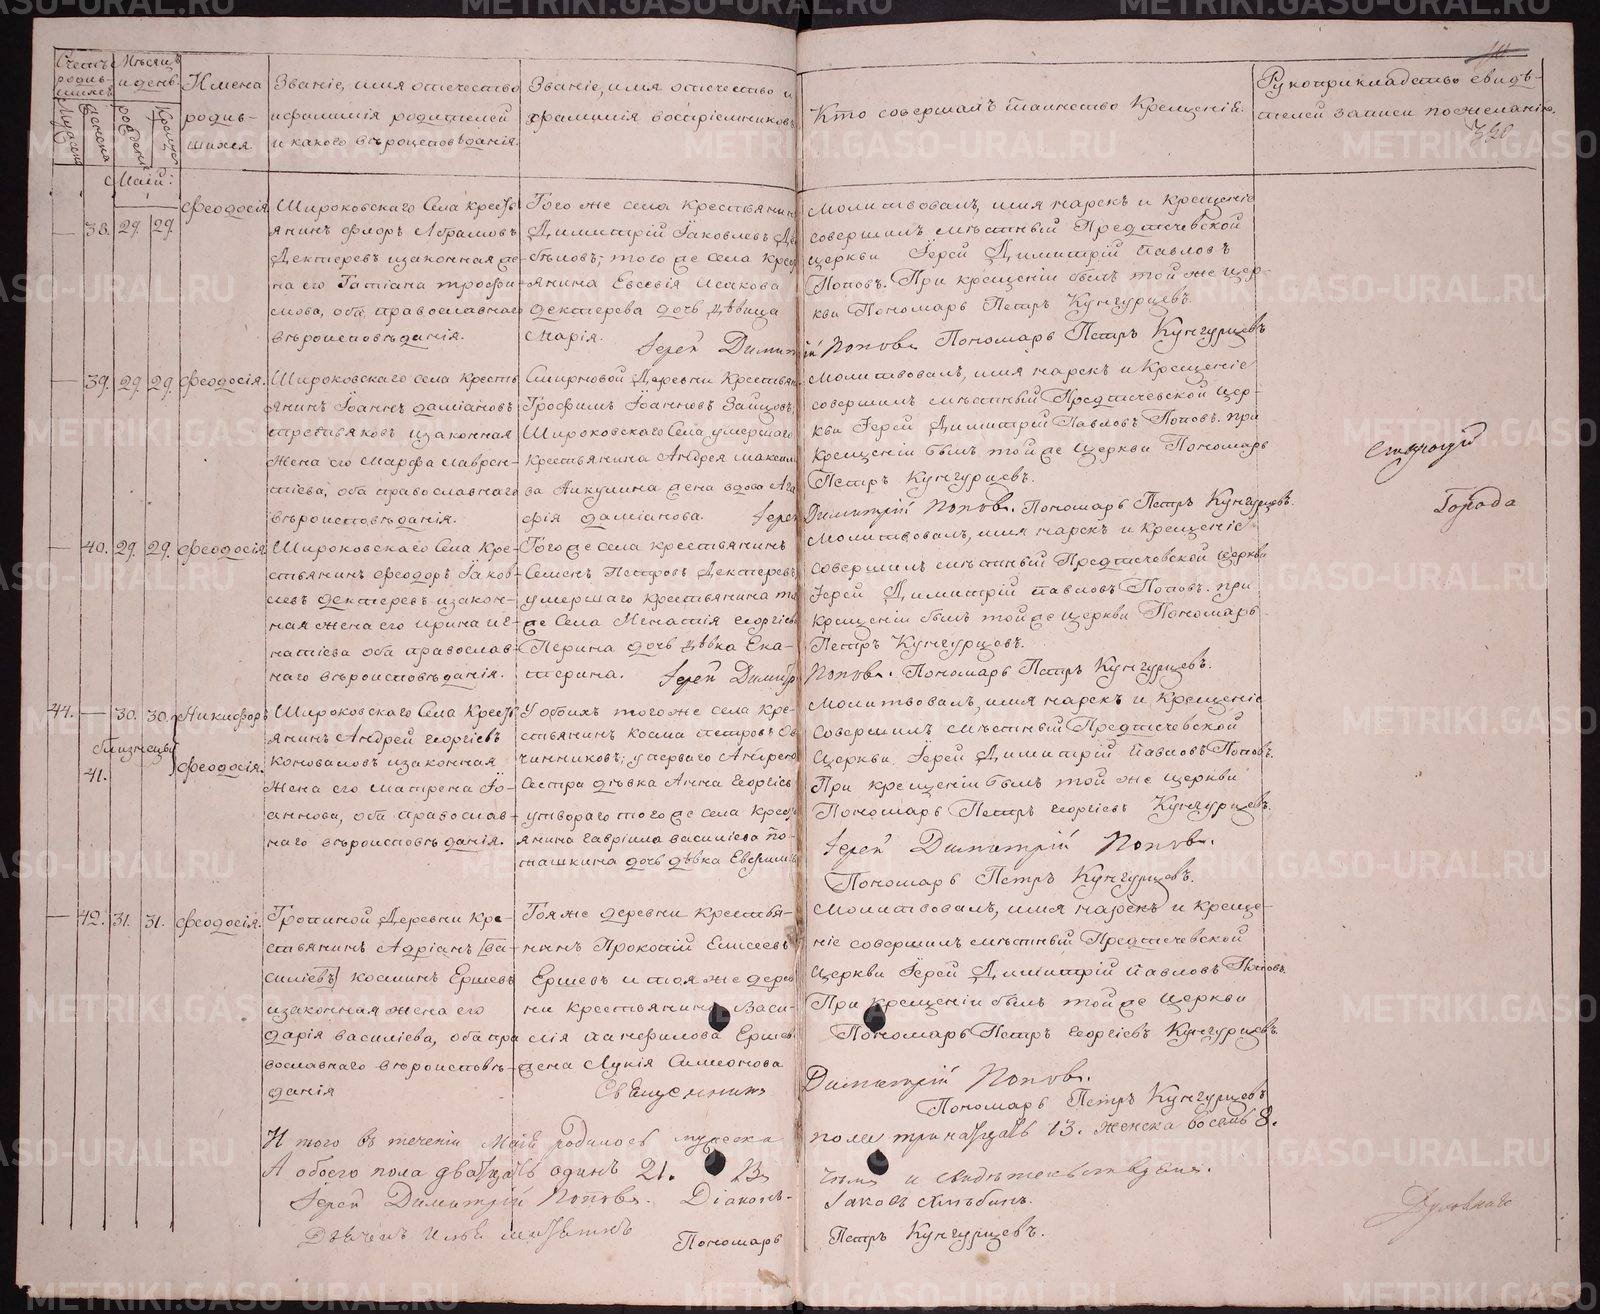 Счетъ родив-шихся.
Мужеска
Женска
Мѣсяцъ и день.
рожденія
крещенія
Имена родив-шихся.
Званіе, имя отечество и фамилія родителей и какого вѣроисповѣданія.
Званіе, имя отечество и фамилія воспріемниковъ
Кто совершалъ таинство Крещенія.
Рукоприкладство свидѣ-телей записи по желанію.
Маій:
38. 29. 29. Феодосія
Широковскаго Села Кресть
янинъ Флоръ Абрамовъ
Дектеревъ изаконная же-
на его Татіана Трофи-
мова, оба православнаго
вѣроисповѣданія.
Того же села крестьянинъ
Димитрій Іаковлевъ Де-
того же села крес
янина Евсевія Исакова
дектерева дочь дѣвица
Марія.
Молитвовалъ, имя нарекъ и крещеніе
совершилъ мѣстный Предтечевской
церкви Іерей Димитрій Павловъ
Поповъ. При крещеніи былъ той же цер-
кви Пономарь Петръ Кунгурцевъ.
Іерей Димитрій Поповъ. Пономарь Петръ Кунгурцевъ
39. 29 29. Феодосія.
Широковскаго села кресть
янинъ Іоаннъ Даміановъ
третьяковъ изаконная
жена его Марфа Лаврен-
тіева, оба православнаго
вѣроисповѣданія.
Смирновой Деревни Крестьян
Трофимъ Іоанновъ Зайцовъ,
Широковскаго Села умершаго
крестьянина Андрея Максимо
ва Аникулина жена вдова Ага
фія Даміанова.
Молитвовалъ, имя нарекъ и Крещеніе
совершилъ мѣстный Предтечевской цер-
кви Іерей Димитрій Павловъ Поповъ. при
крещеніи былъ той же Церкви Пономарь
Петръ Кунгурцевъ.
Іерей Димитрій Поповъ. Пономарь Петръ Кунгурцевъ.
40. 29. 29. Феодосія
Широковскаго Села Кре-
стьянинъ Феодоръ Іаков-
левъ дектеревъ изакон-
ная жена его Ирина Иг-
натіева оба православ-
наго вѣроисповѣданія.
Того же села крестьянинъ
Семенъ Петровъ Дектеревъ
умершаго крестьянина то
же Села Игнатія Георгіев
Перина дочь дѣвка Ека-
терина.
Молитвовалъ, имя нарекъ и крещеніе
совершилъ мѣстный Предтечевской Церкви
Іерей Димитрій Павловъ Поповъ. при
крещеніи былъ той же церкви Пономарь
Петръ Кунгурцевъ.
Іерей Димитр Поповъ. Пономарь Петръ Кунгурцевъ.
44. 30. 30. Никифоръ
близнецы
41. Феодосія.
Широковскаго Села Кресть
янинъ Андрей Георгіевъ
Коноваловъ изаконная
Жена его Матрена Іо-
аннова, оба православ-
наго вѣроисповѣданія.
У обоихъ того же села кре-
стьянинъ Косма Петровъ Ов
чинниковъ; у перваго Андрею
Сестра дѣвка Анна Георгіев
у втораго того же села Кресть
янина Гавріила Василіева По-
ташкина дочь дѣвка Евфимія
Молитвовалъ, имя нарекъ и Крещеніе
Совершилъ мѣстный Предтечевской
Церкви Іерей Димитрій Павловъ Поповъ.
При крещеніи былъ той же церкви
Пономарь Петръ Георгіевъ Кунгурцевъ.
Іерей Димитрій Поповъ.
Пономарь Петръ Кунгурцевъ.
42. 31. 31. Феодосія.
Тропиной Деревни Кре-
стьянинъ Адріанъ [Ва-
силіевъ] Косминъ Ершевъ
изаконная жена его
Дарія Василіева, оба пра
вославнаго вѣроисповѣ-
данія
Тоя же деревни крестья-
нинъ Прокопій Елисеевъ
Ершевъ и тоя же дерев
ни крестьянина Васи-
лія Памфилова Ершев
жена Лукія Симеонова
Молитвовалъ, имя нарекъ и креще-
ніе совершилъ мѣстный Предтечевской
Церкви Іерей Димитрій Павловъ Поповъ.
При крещеніи былъ той же церкви
Пономарь Петръ Георгіевъ Кунгурцевъ.
Священникъ Димитрій Поповъ.
Пономарь Петръ Кунгурцевъ
Итого въ теченіи Маія родилось мужеска пола тринадцать 13. женска восемь 8.
А обоего пола двадцать одинъ 21.
и свидѣтельствуемъ.
Іерей Димитрій Поповъ. Діаконъ Іаковъ Хлѣбинъ.
Пономарь Петръ Кунгурцевъ.
METRIKI.GASO-URAL.RU